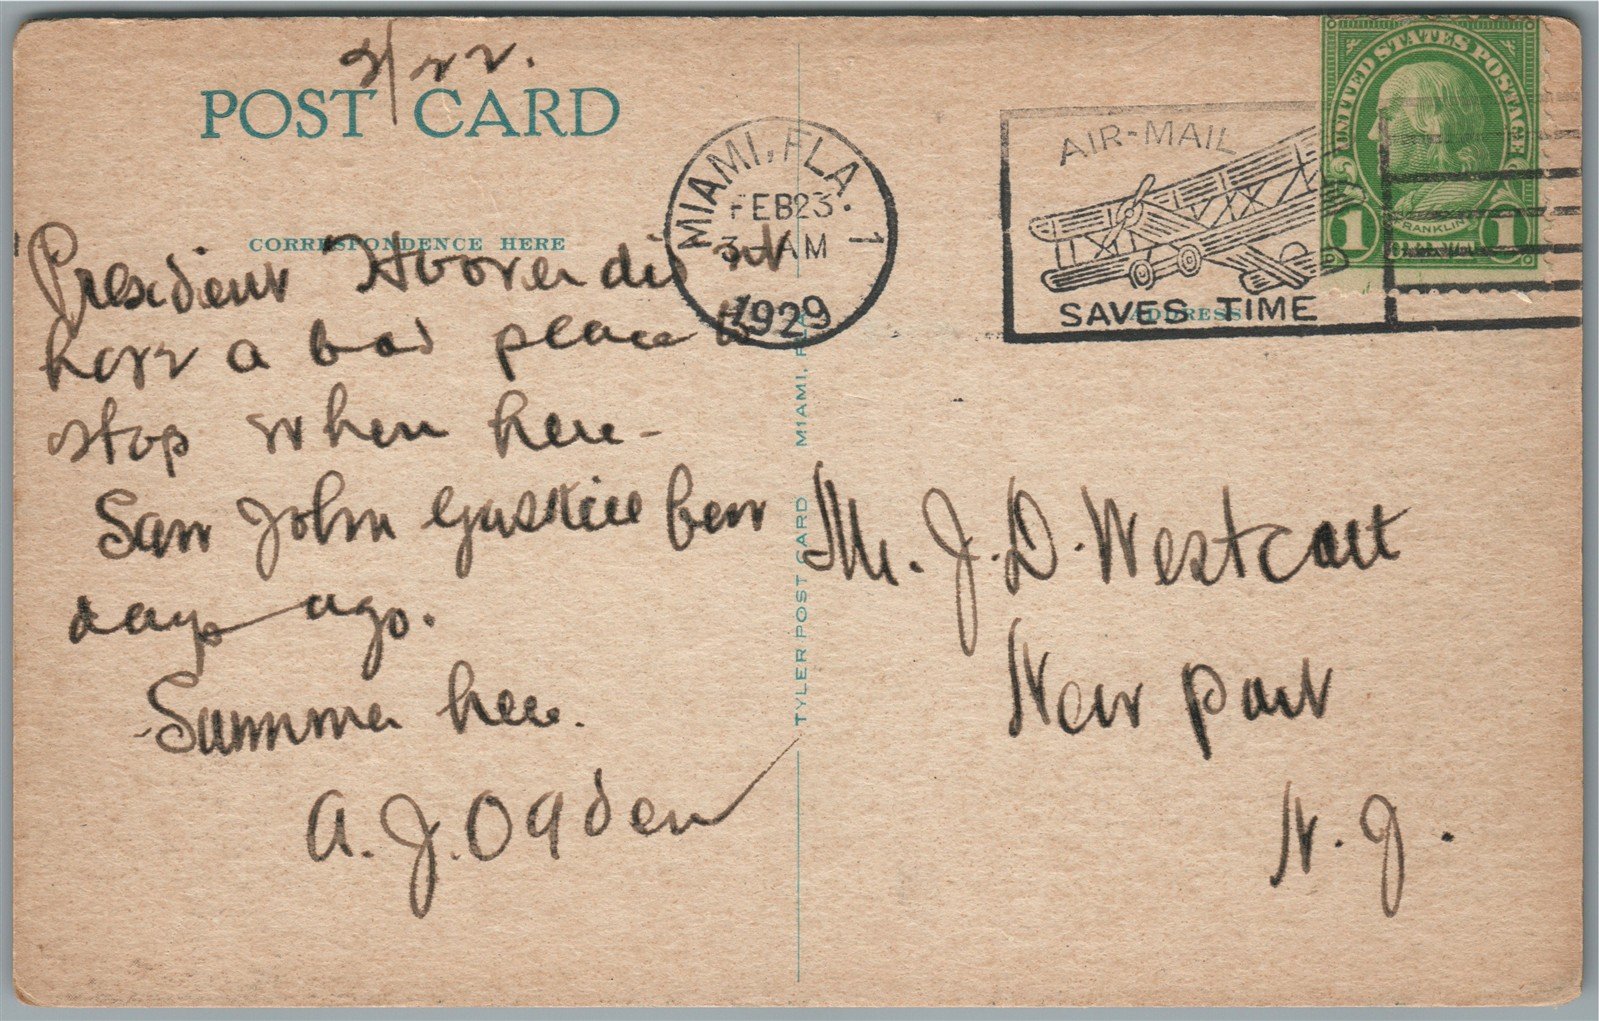 2/22.
POST CARD
CORRESPONDENCE HERE
President Hoover did not
have a bad place to
stop when here -
Saw John Gaskill few
days ago.
Summer here.
A. J. Ogden
TYLER POST CARD MIAMI, FLA.
MIAMI, FLA.
FEB 23
3 - AM
1929
1
AIR-MAIL
SAVES TIME
ADDRESS
UNITED STATES POSTAGE
1 FRANKLIN 1
Mr. J. D. Westcott
New port
N. J.